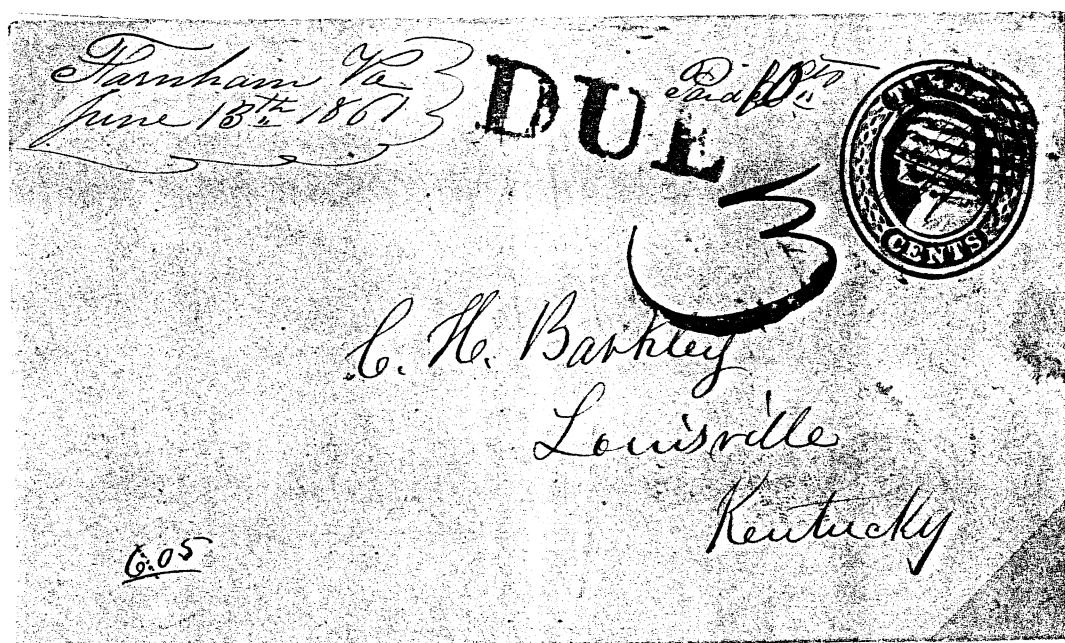 Farnham Va
June 13th 1861
DUE
Paid 10cts
3
CENTS
C. H. Barkley
Louisville
Kentucky
6.05